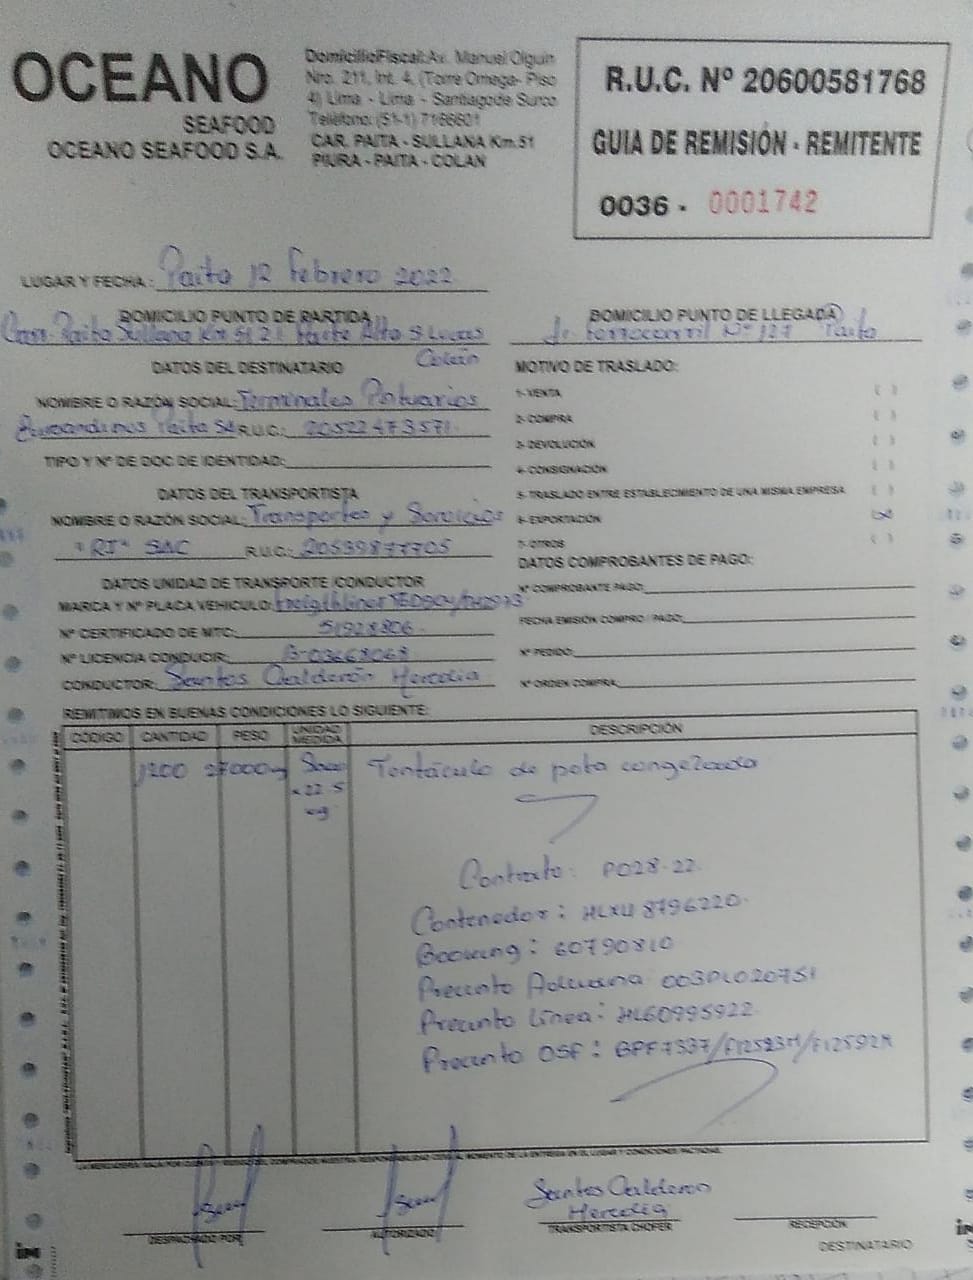 OCEANO
SEAFOOD
OCEANO SEAFOOD S.A.
Domicilio Fiscal: Av. Manuel Olguin
Nro. 211, Int. 4, (Torre Omega- Piso
4) Lima - Lima - Santiago de Surco
Teléfono: (51-1) 7156601
CAR. PAITA - SULLANA Km.51
PIURA - PAITA - COLAN
R.U.C. Nº 20600581768
GUIA DE REMISIÓN - REMITENTE
0036 - 0001742
LUGAR Y FECHA: Paita 12 Febrero 2022
DOMICILIO PUNTO DE PARTIDA
Carr. Paita Sullana Km 51 21 Parte Alta S Lucas
Colán
DOMICILIO PUNTO DE LLEGADA
Jr Ferrocarril Nº 127 Paita
DATOS DEL DESTINATARIO
NOMBRE O RAZÓN SOCIAL: Terminales Portuarios
Euroandinos Paita SA R.U.C.: 20522473571
TIPO Y Nº DE DOC DE IDENTIDAD:
MOTIVO DE TRASLADO:
1- VENTA ( )
2- COMPRA ( )
3- DEVOLUCIÓN ( )
4- CONSIGNACIÓN ( )
5- TRASLADO ENTRE ESTABLECIMIENTO DE UNA MISMA EMPRESA ( )
6- EXPORTACIÓN (x)
7- OTROS ( )
DATOS DEL TRANSPORTISTA
NOMBRE O RAZÓN SOCIAL: Transportes y Servicios
"RJ" SAC R.U.C.: 20539877705
DATOS COMPROBANTES DE PAGO:
Nº COMPROBANTE PAGO:
FECHA EMISIÓN COMPRO / PAGO:
Nº PEDIDO:
Nº ORDEN COMPRA:
DATOS UNIDAD DE TRANSPORTE /CONDUCTOR
MARCA Y Nº PLACA VEHICULO: Freigthliner
Nº CERTIFICADO DE MTC: 51928806
Nº LICENCIA CONDUCIR: B-03668068
CONDUCTOR: Santos Calderón Heredia
REMITIMOS EN BUENAS CONDICIONES LO SIGUIENTE:
CÓDIGO CANTIDAD PESO UNIDAD MEDIDA DESCRIPCIÓN
1200 27000 Saco Tentáculo de pota congelada
x 22.5
kg
Contrato: P028-22
Contenedor: HLXU 8796220
Booking: 60790810
Precinto Aduana 0030L020751
Precinto Línea: HL60995922
Precinto OSF: GPF7337/F12523M/F12592M
Santos Calderon
Heredia
DESPACHADO POR
AUTORIZADO
TRANSPORTISTA CHOFER
RECEPCIÓN
DESTINATARIO